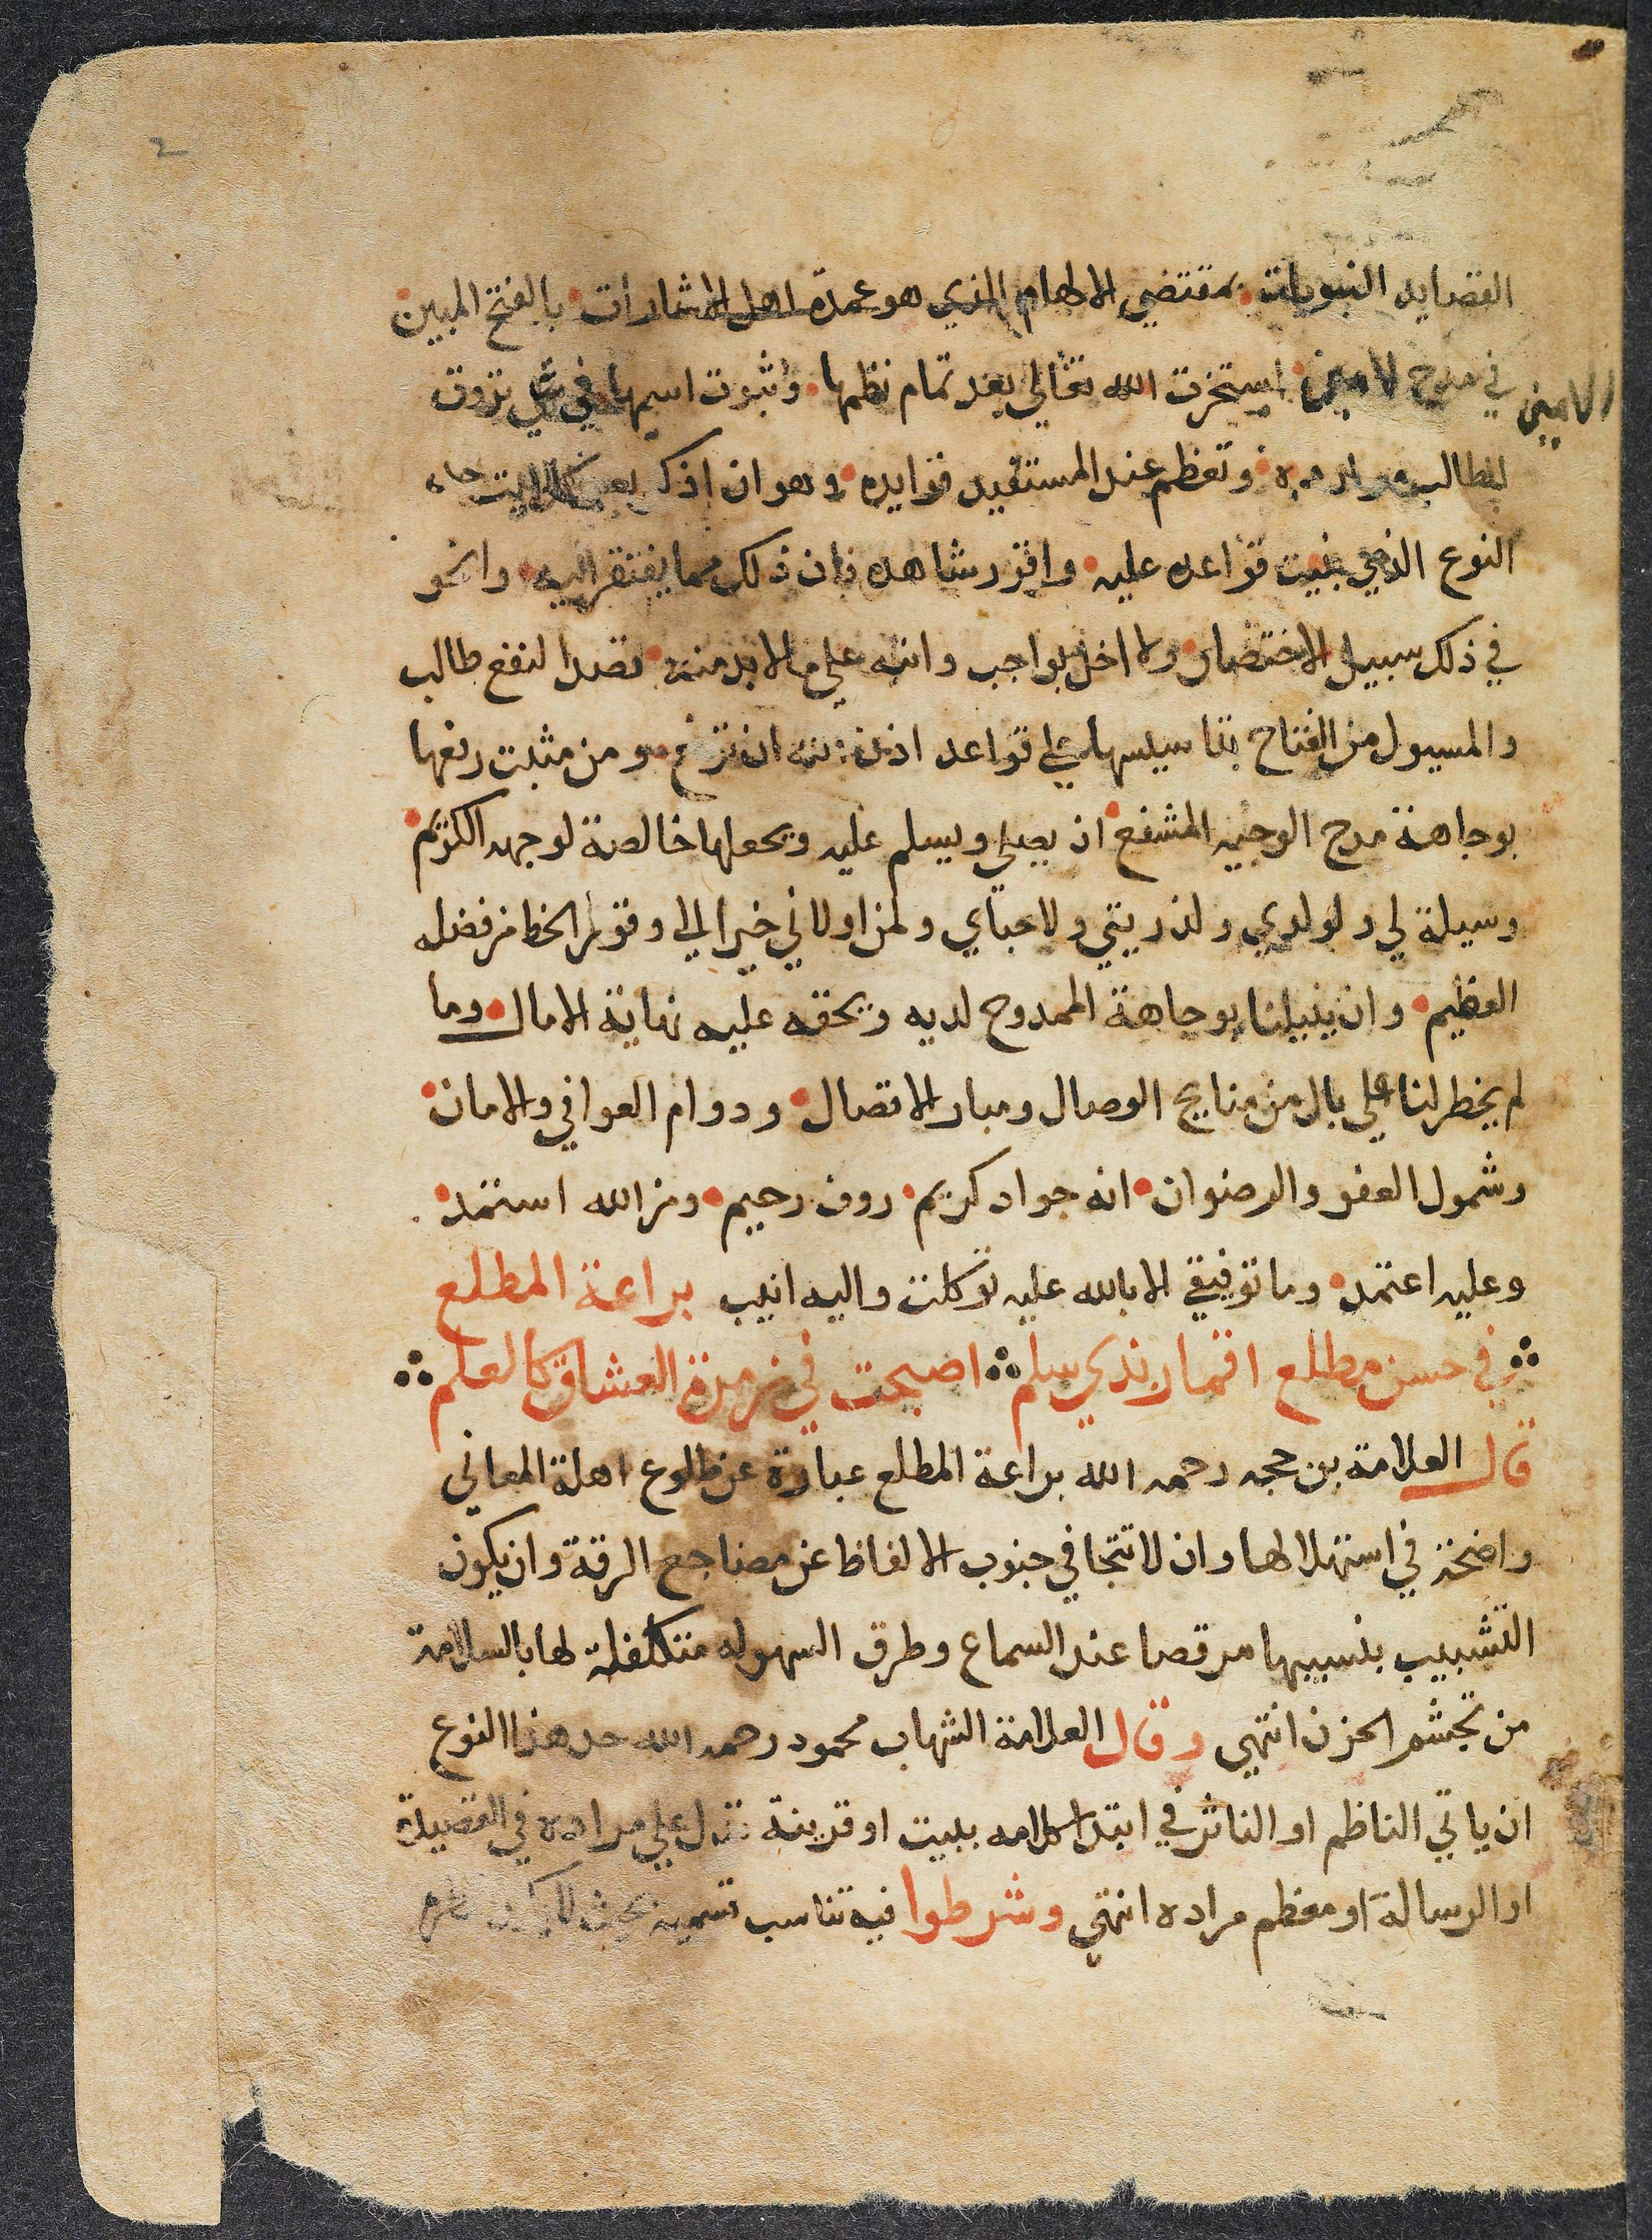 القصايد النبويات بمقتضي الالهام الذي هو عمدة اهل الاشارات بالفتح المبين
في مدح الامين استخرت الله تعالي بعد تمام نظمها وثبوت اسمها في شي تروق
الامين
لطالب موارده وتعظم عند المستفيد فوايده وهو ان اذكر بعد كل بيت
النوع الذي بنيت قواعده عليه واقرر شاهده فان ذلك مما يفتقر اليه وانحو
في ذلك سبيل الاختصار ولا اخل بواجب وانبه علي ما لابد منه قصدا لنفع طالب
والمسيول من الفتاح بتاسيسها علي قواعد اذن الله ان ترفع ومن مثبت رفعها
بوجاهة مدح الوجيه المشفع ان يصلي ويسلم عليه ويجعلها خالصة لوجهه الكريم
وسيلة لي ولولدي ولذريتي ولاحباي ولمن اولاني خيرا الي وفور الحظ من فضله
العظيم وان ينيلنا بوجاهة الممدوح لديه وبحقه عليه نهاية الامال وما
لم يخطر لنا علي بال من منايح الوصال ومبار الاتصال ودوام العوافي والامان
وشمول العفو والرضوان انه جواد كريم روف رحيم ومن الله استمد
وعليه اعتمد وما توفيقي الا بالله عليه توكلت واليه انيب براعة المطلع
في حسن مطلع اقمار بذي سلم اصبحت في زمرة العشاق كالعلم
قال العلامة بن حجه رحمه الله براعة المطلع عبارة عن طلوع اهلة المعاني
واضحة في استهلالها وان لا تتجافي جنوب الالفاظ عن مضاجع الرقة وان يكون
التشبيب بنسيبها مرقصا عند السماع وطرق السهوله متكفلة لها بالسلامة
من تجشم الحزن انتهي وقال العلامة الشهاب محمود رحمه الله حد هذا النوع
ان ياتي الناظم او الناثر في ابتدا كلامه ببيت او قرينة تدل علي مراده في القصيدة
او الرسالة او معظم مراده انتهي وشرطوا فيه تناسب قسميه بحيث لا يكون